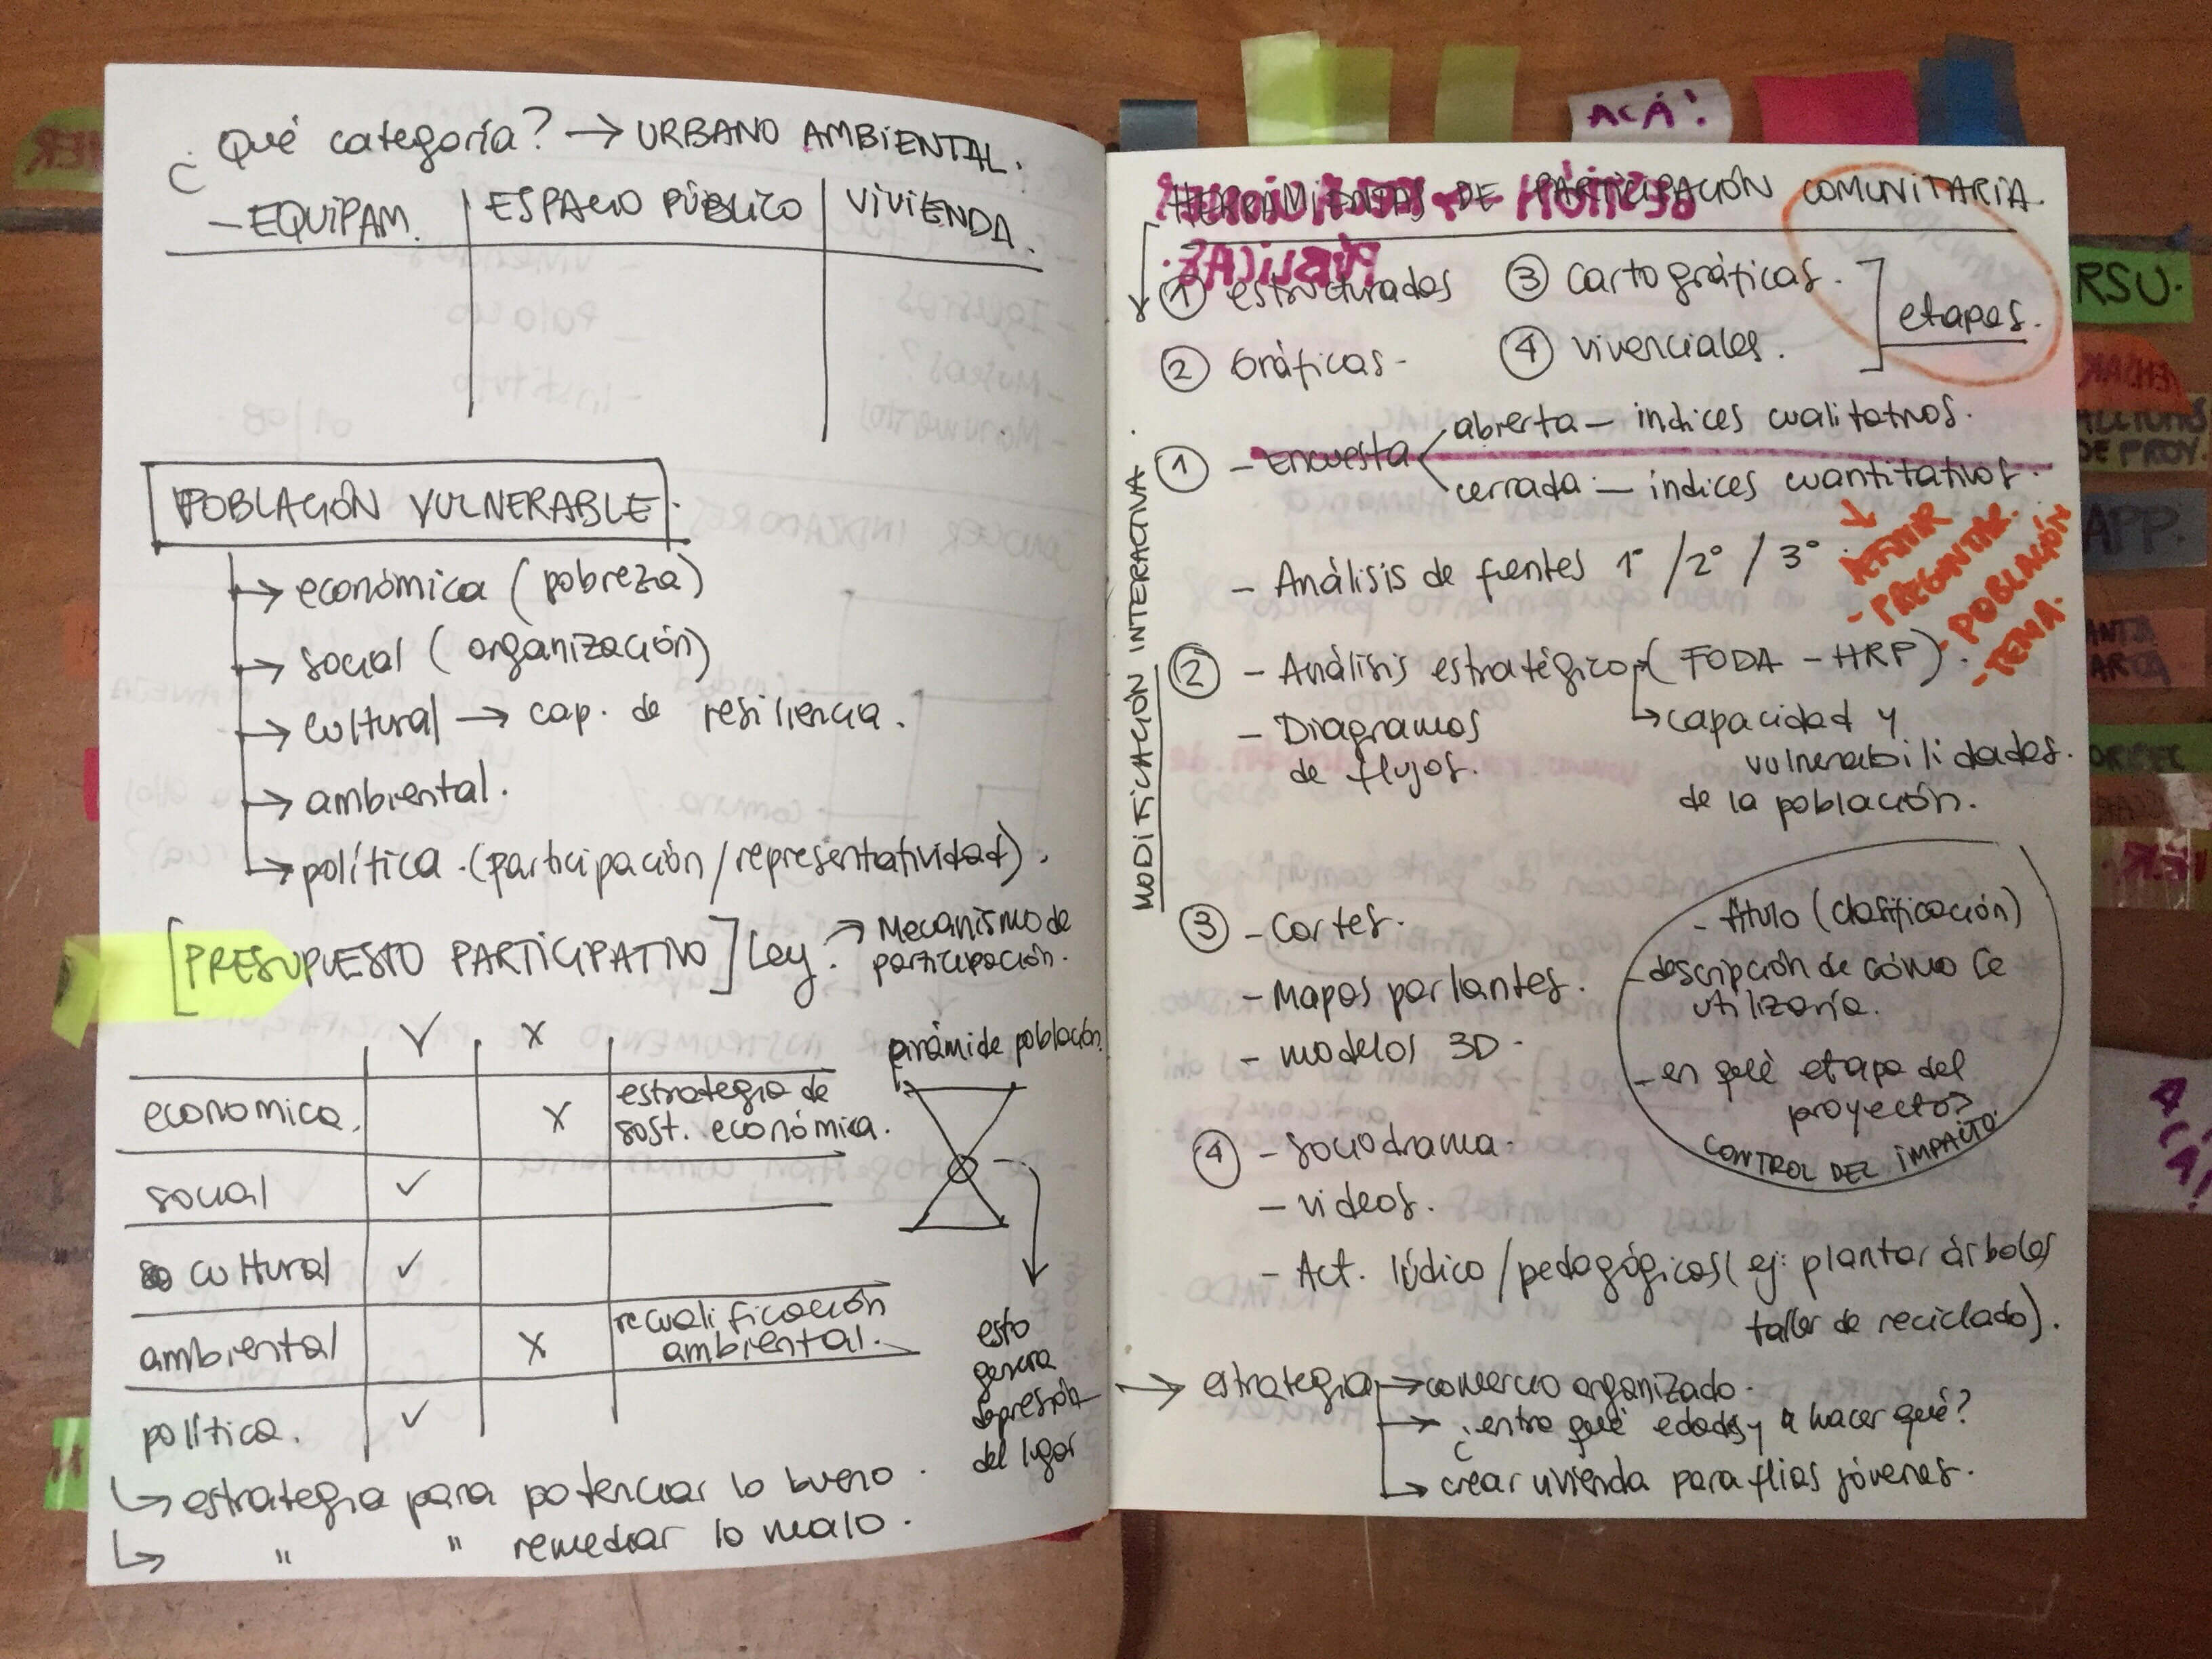 ¿Qué categoría? → URBANO AMBIENTAL.
- EQUIPAM. | ESPACIO PÚBLICO | VIVIENDA.
POBLACIÓN VULNERABLE.
→ económica (pobreza)
→ social (organización)
→ cultural → cap. de resiliencia.
→ ambiental.
→ política. (participación/representatividad).
[PRESUPUESTO PARTICIPATIVO] Ley. → Mecanismo de
participación.
✓ X
economica. X estrategia de
sost. económica.
social ✓
cultural ✓
ambiental X recualificación
ambiental.
política. ✓
pirámide población.
esto
genera
depresión
del lugar
↳ estrategia para potenciar lo bueno.
↳ " " remediar lo malo.
ACÁ!
HERRAMIENTAS DE PARTICIPACIÓN COMUNITARIA.
① estructurados ③ cartográficas.
② Gráficas - ④ vivenciales.
etapas.
MODIFICACIÓN INTERACTIVA.
① - Encuesta
abierta - indices cualitativos.
cerrada - indices cuantitativos.
- Análisis de fuentes 1° / 2° / 3°
- PREGUNTAR.
- POBLACIÓN
- TEMA.
② - Análisis estratégico (FODA - HRP).
↳ capacidad y
vulnerabilidades.
de la población.
- Diagramas
de flujos.
③ - Cortes.
- Mapas parlantes.
- modelos 3D -
- título (clasificación)
- descripción de cómo se
utilizaría.
- en qué etapa del
proyecto?
CONTROL DEL IMPACTO.
④ - sociodrama.
- videos.
- Act. lúdico/pedagógicos (ej: plantar árboles
taller de reciclado).
→ estrategia → comercio organizado.
→ ¿entre qué edades y a hacer qué?
→ crear vivienda para flias jóvenes.
RSU.
DE PROY.
APP.
ACÁ!